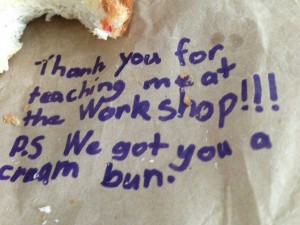 Thank you for
teaching me at
the Workshop!!!
P.S We got you a
cream bun.